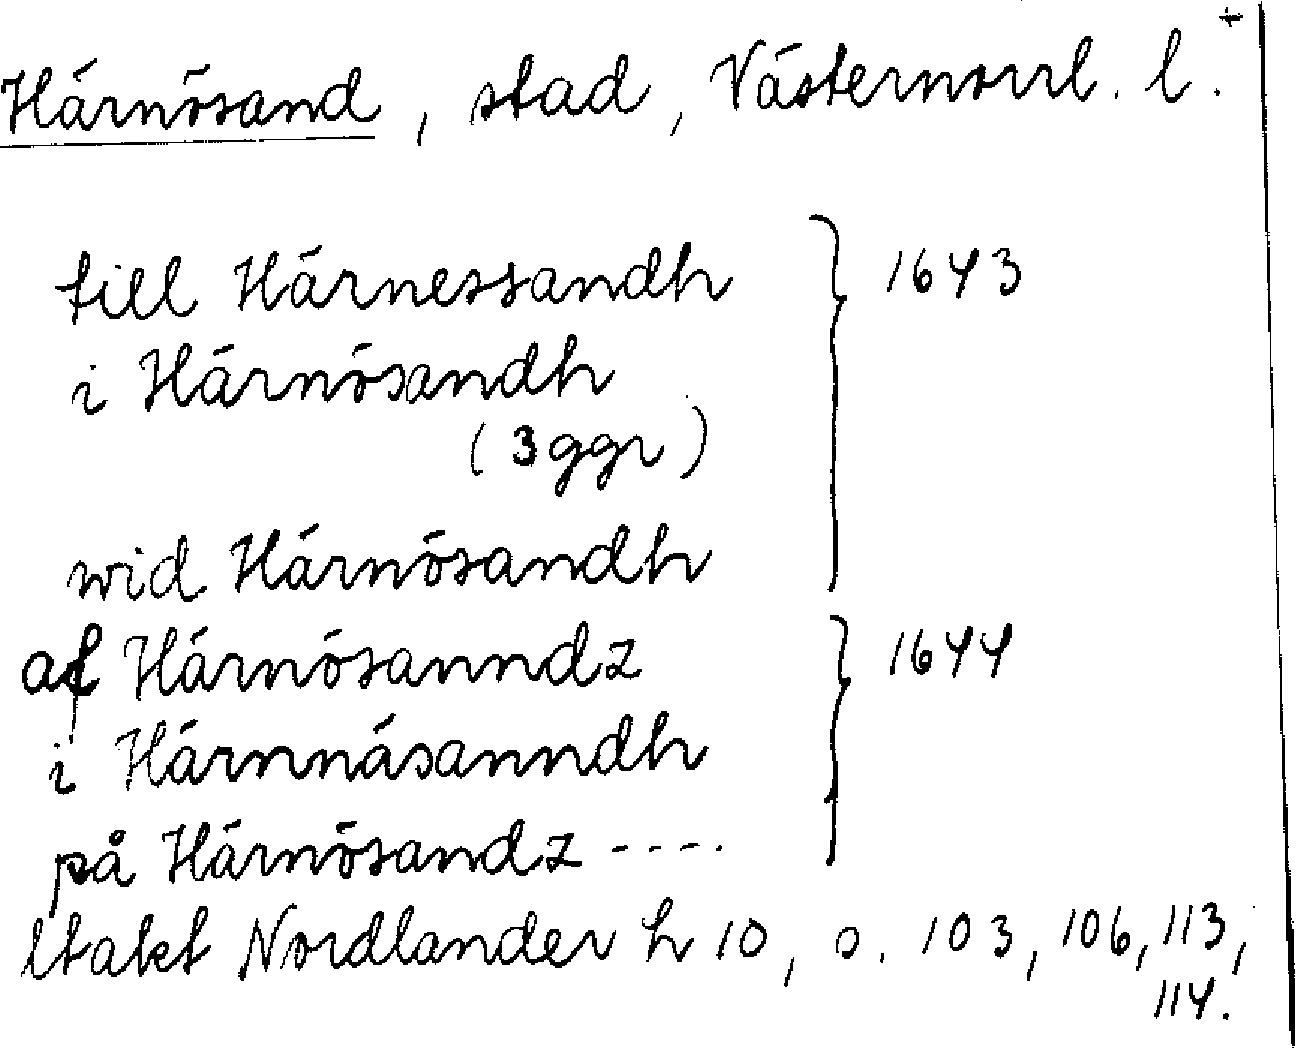 Härnösand, stad, Västernorrl. l. +
till Härnessandh } 1643
i Härnösandh
(3 ggr)
wid Härnösandh
af Härnösanndz } 1644
i Härnnäsanndh
på Härnösandz ----
Utakt Nordlander h 10, s. 103, 106, 113,
114.